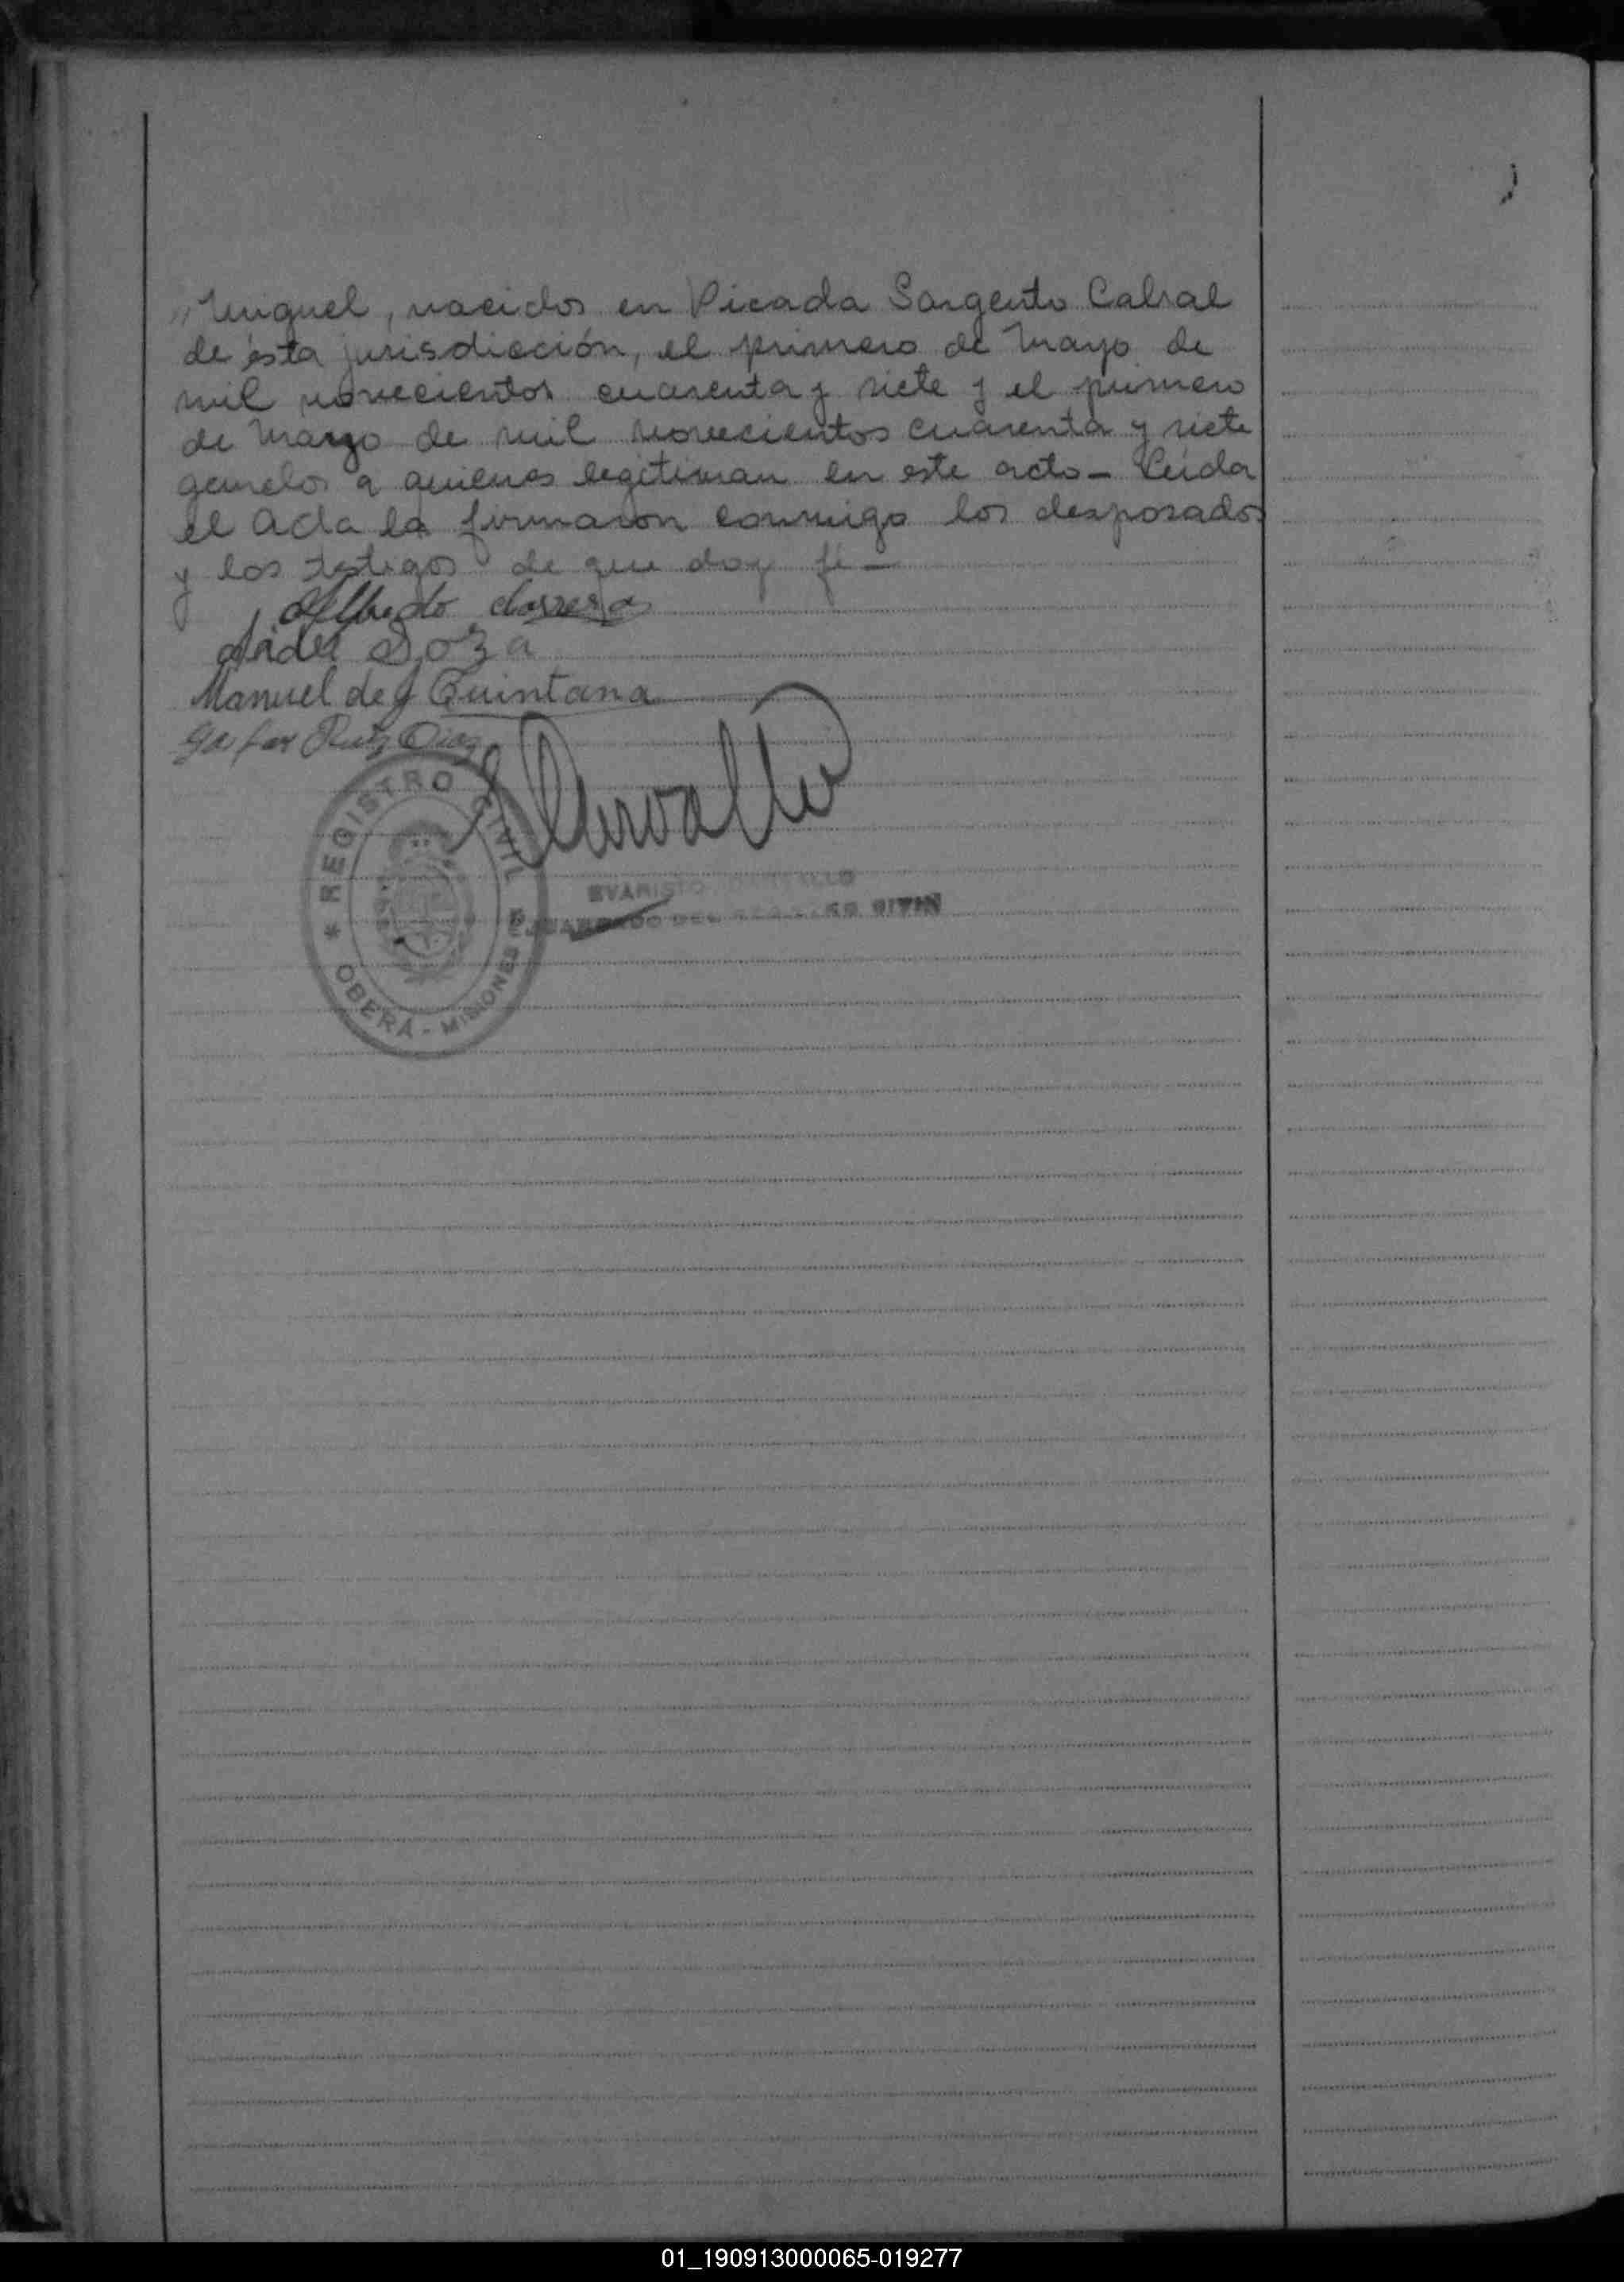 " Miguel, nacidos en Picada Sargento Cabral
de ésta jurisdicción, el primero de Mayo de
mil novecientos cuarenta y siete y el primero
de Marzo de mil novecientos cuarenta y siete
gemelos a quienes legitiman en este acto - Leída
el Acta la firmaron conmigo los desposados
y los testigos de que doy fé -
Alfredo
Soza
Manuel de J Quintana
Gaspar Ruiz Diaz
REGISTRO CIVIL
OBERÁ - MISIONES
EVARISTO
ENCARGADO DEL REGISTRO CIVIL
01_190913000065-019277